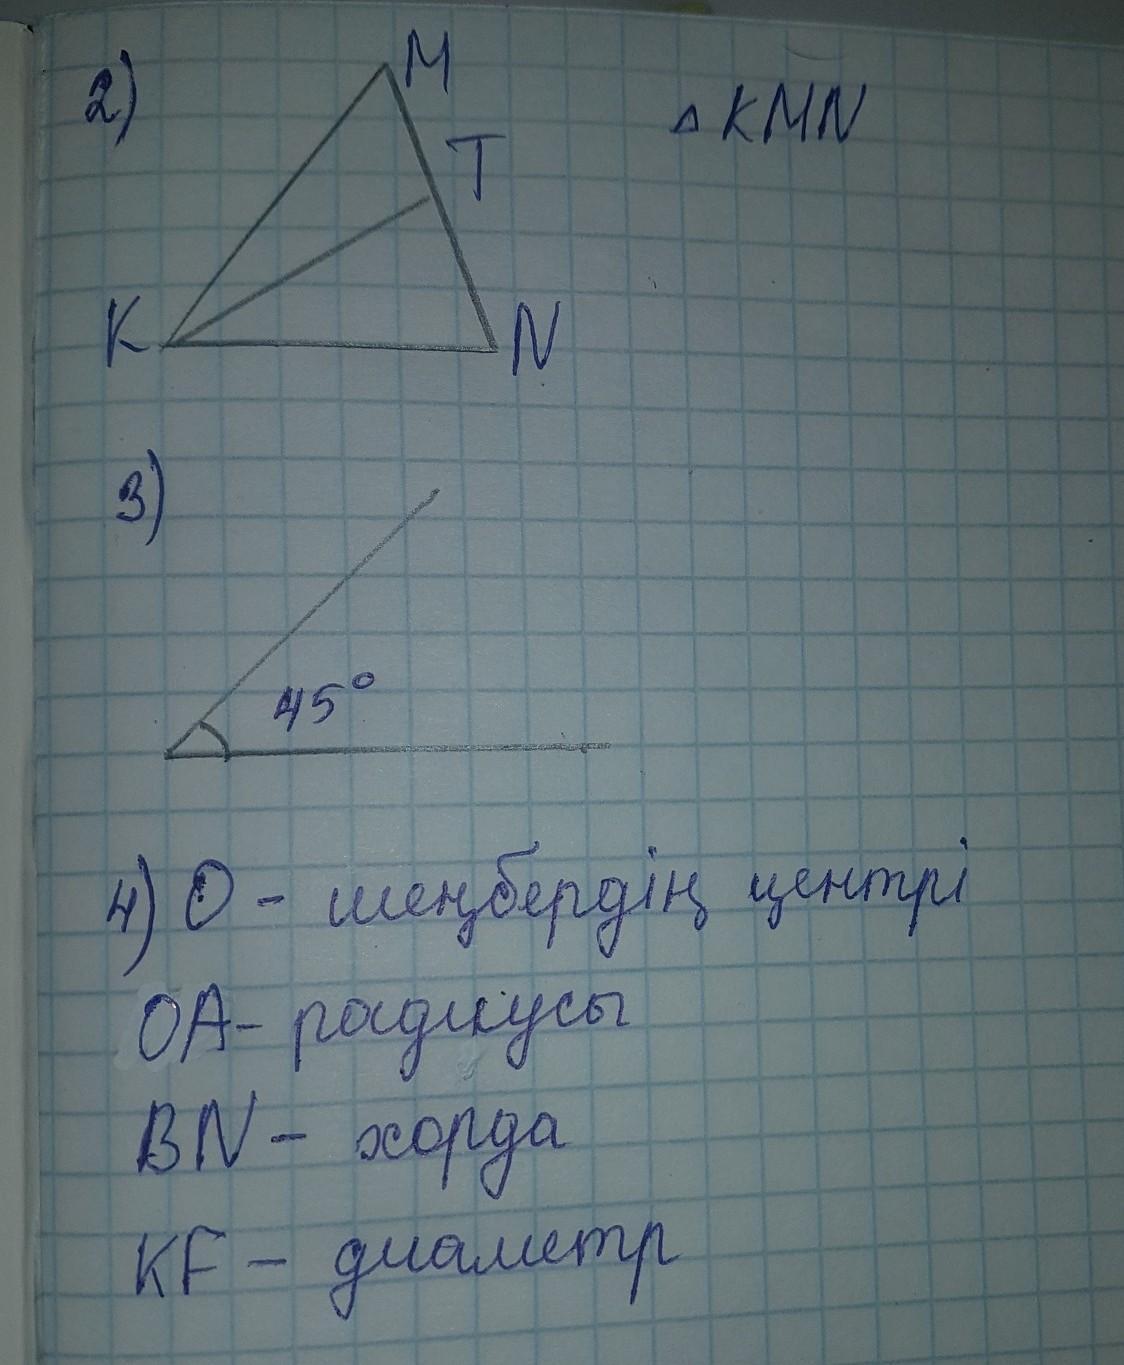 2)
M
△ KMN
T
K
N
3)
45°
4) O - шеңбердің центрі
OA- радиусы
BN - хорда
KF - диаметр